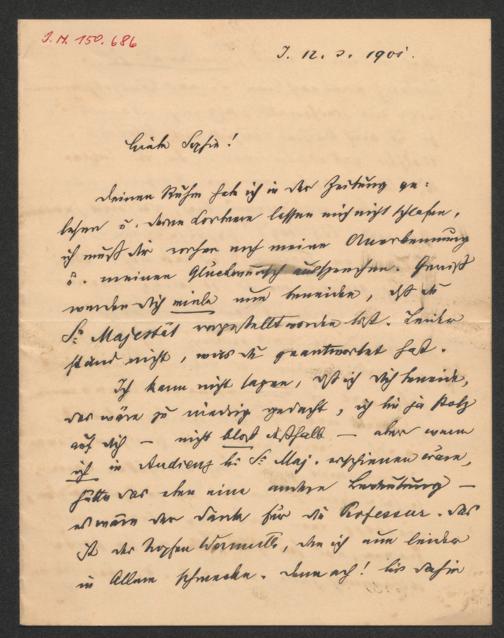 J. N. 150.686
J. 12. 3. 1901.
Liebe Sophie!
Deinen Ruhm hab ich in der Zeitung ge-
lesen u. deine Lorbeere lassen mich nicht schlafen,
ich muß dir vorher noch meine Anerkennung
u. meinen Glückwunsch aussprechen. Gewiß
werden dich viele nun beneiden, daß du
Sr. Majestät vorgestellt worden bist. Leider
stand nicht, was du geantwortet hast.
Ich kann nicht sagen, daß ich dich beneide,
das wäre zu niedrig gedacht, ich bin ja stolz
auf dich – nicht bloß deßhalb – aber wenn
ich in Audienz bei Sr. Maj. erschienen wäre,
hätte das eben eine andere Bedeutung –
es wäre der Dank für die Professur. Das
ist der Tropfen Wermuth, den ich nun leider
in Allem schmecke. Denn ach! bis dahin